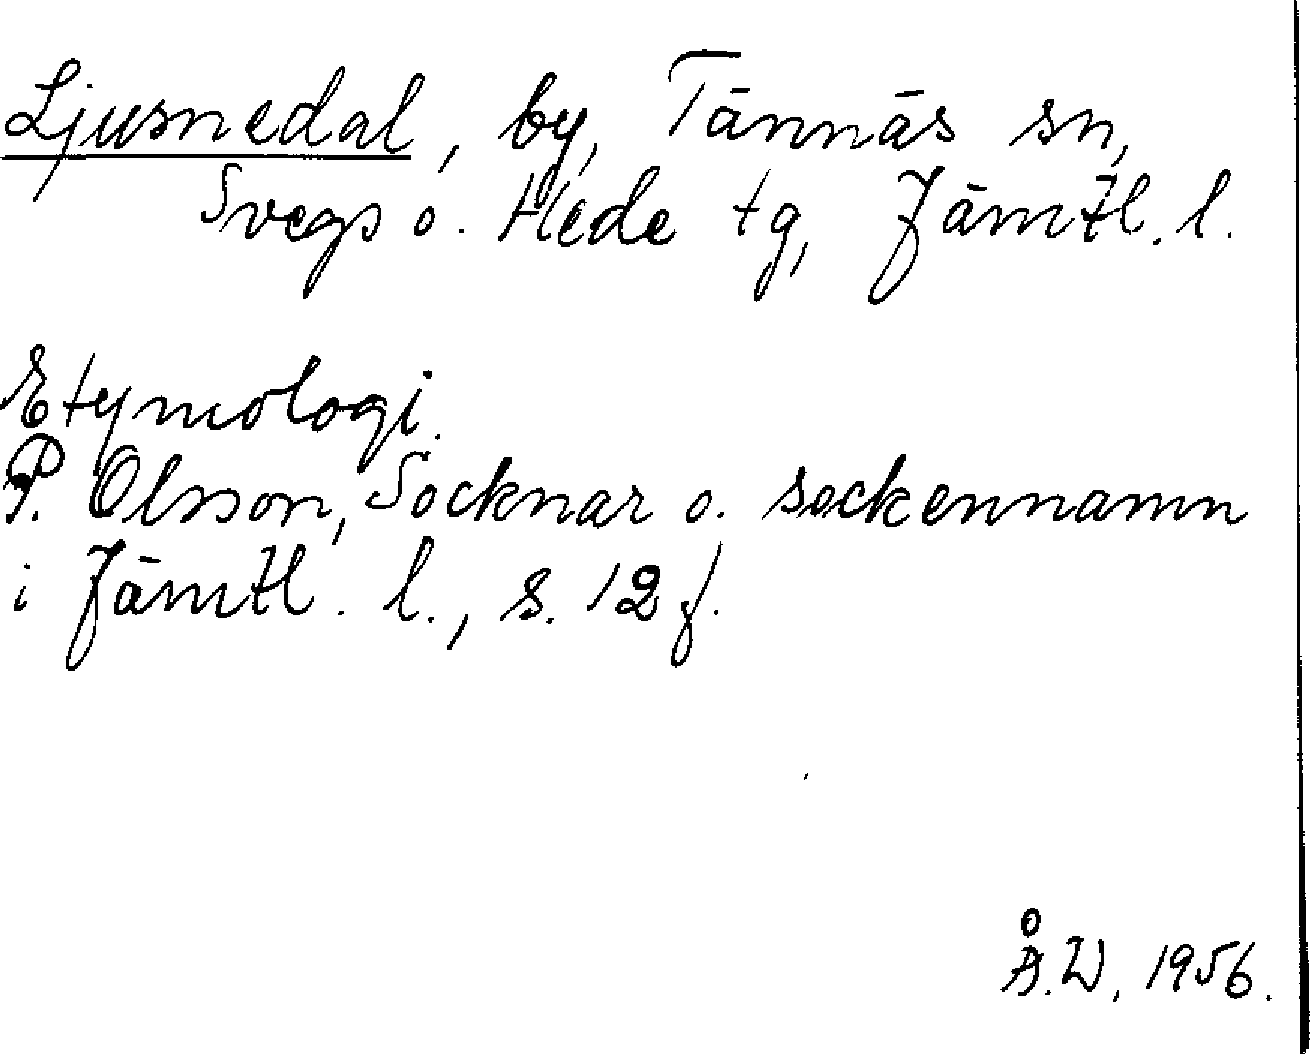 Ljusnedal, by, Tännäs sn,
Svegs o. Hede tg, Jämtl. l.
Etymologi.
P. Olsson, Socknar o. sockennamn
i Jämtl. l., s. 12 f.
Å.W, 1956.